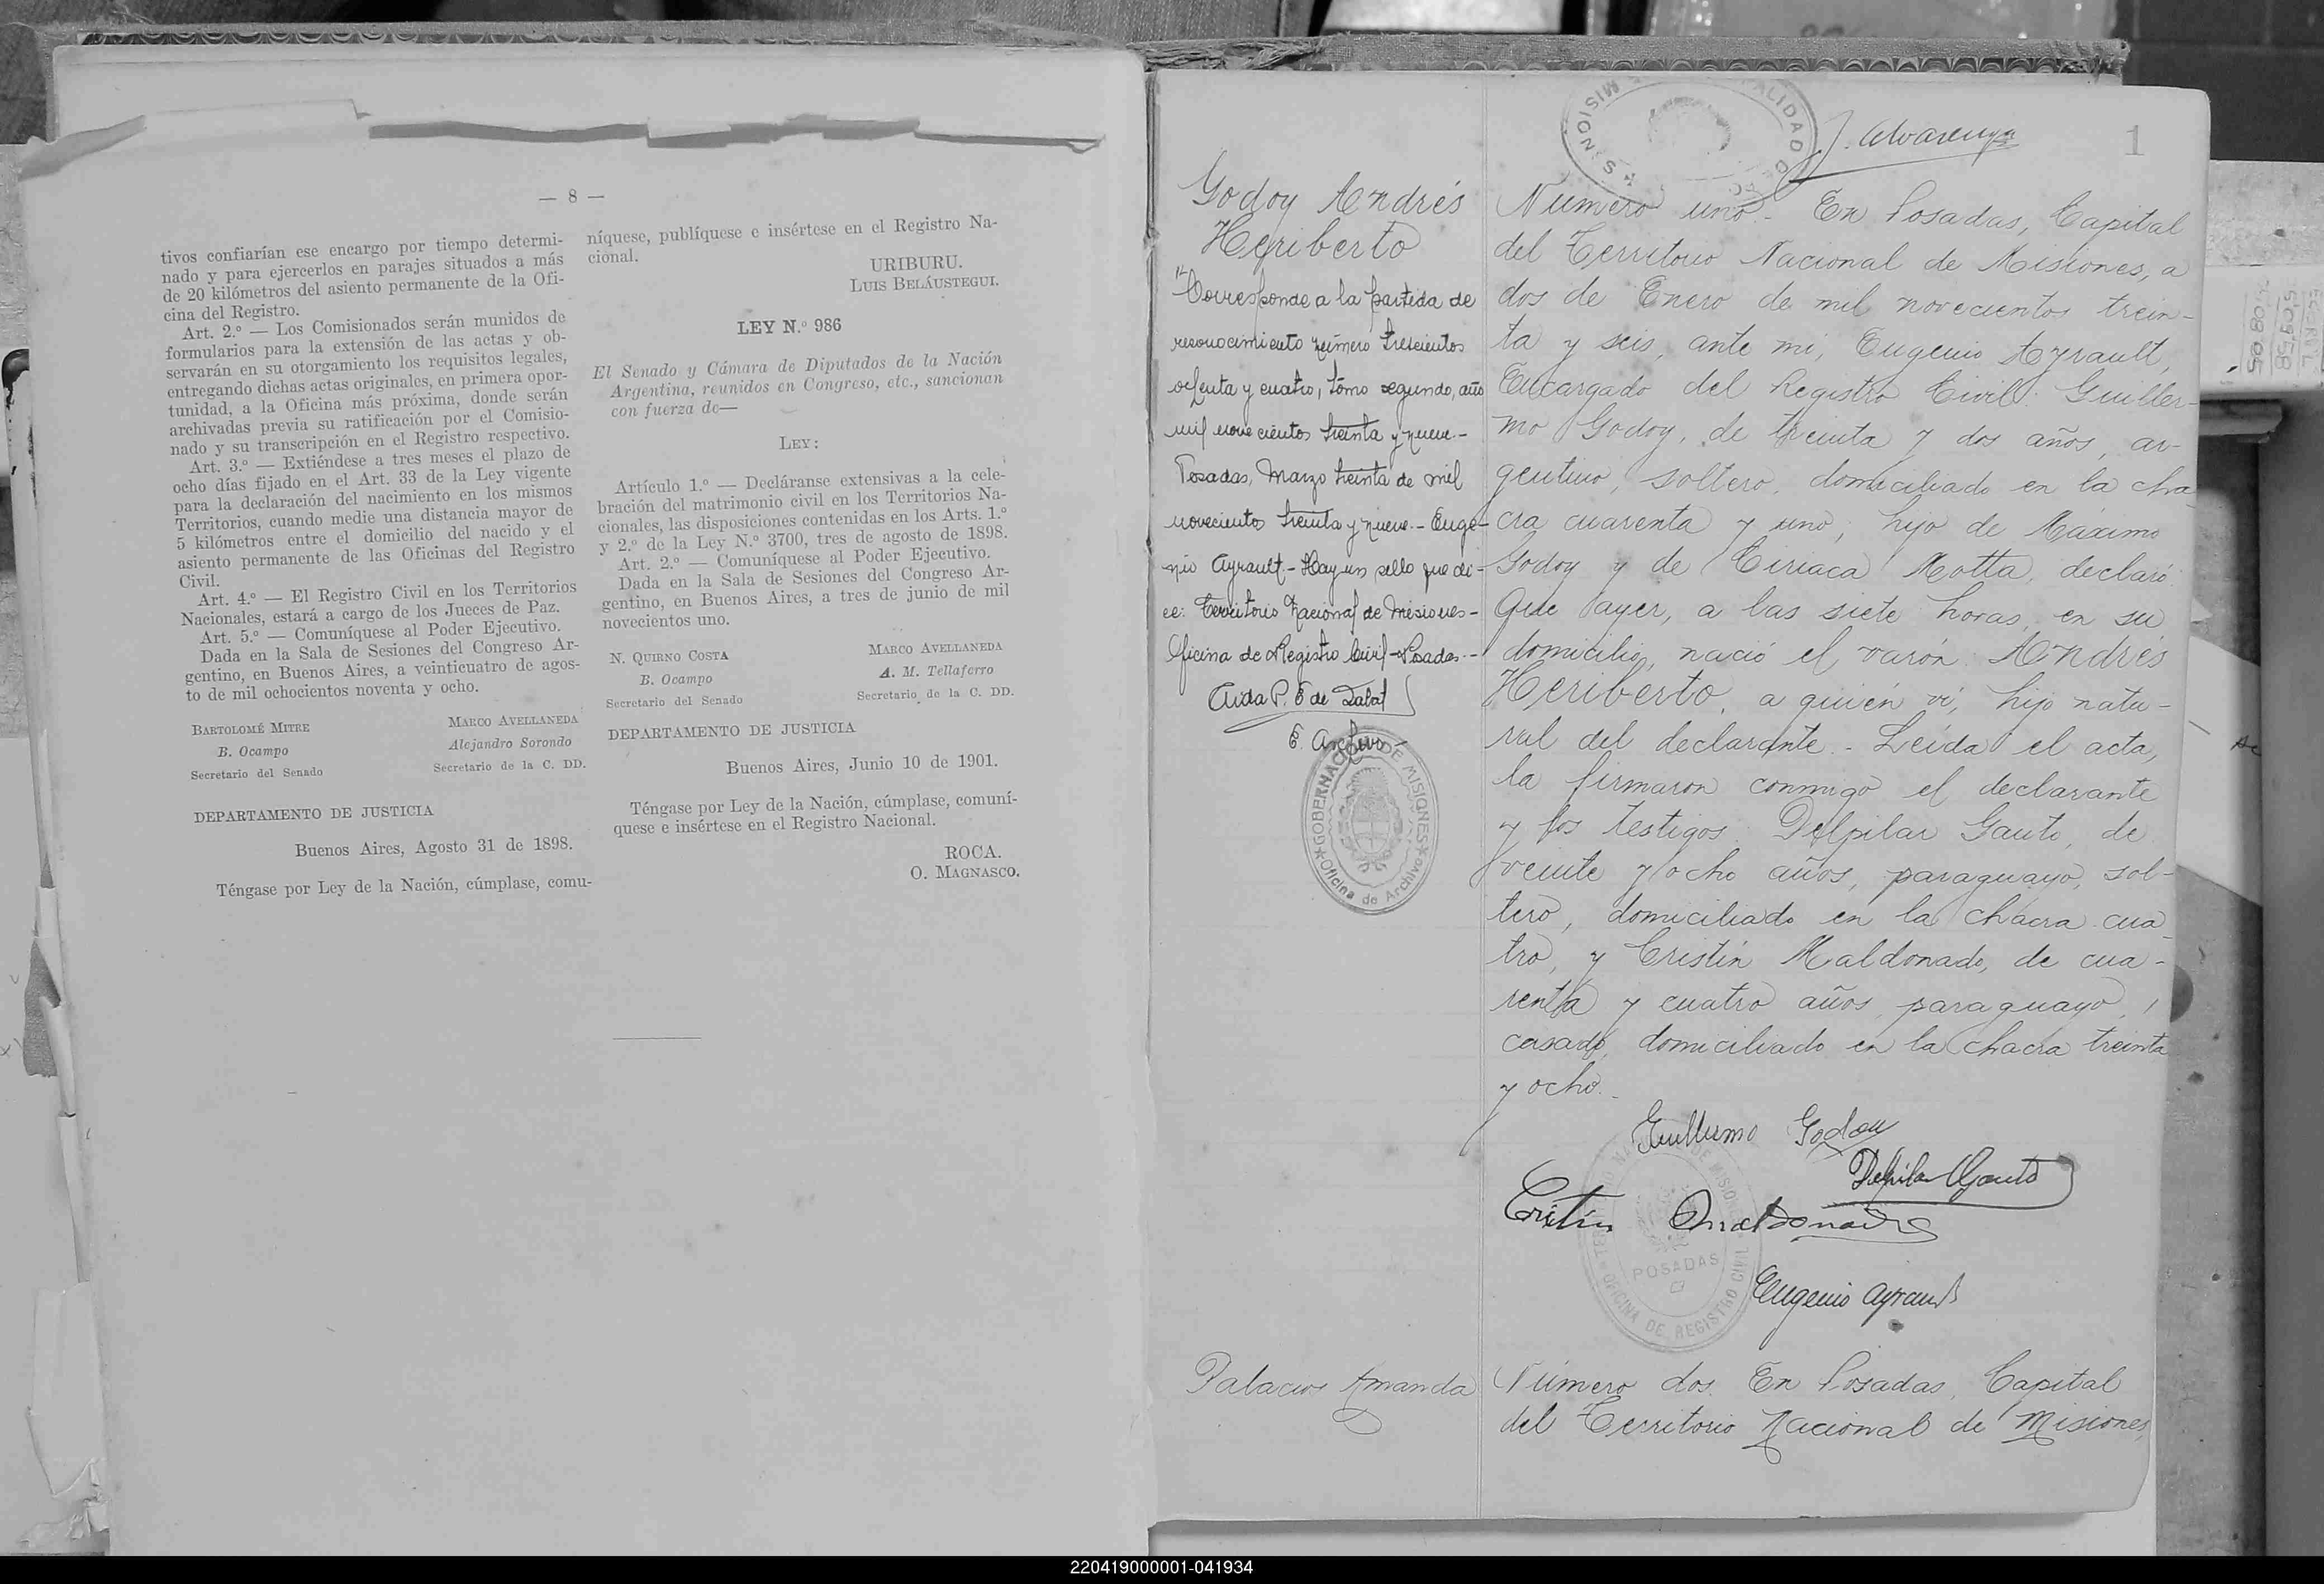 — 8 —
tivos confiarían ese encargo por tiempo determi-
nado y para ejercerlos en parajes situados a más
de 20 kilómetros del asiento permanente de la Ofi-
cina del Registro.
Art. 2.º — Los Comisionados serán munidos de
formularios para la extensión de las actas y ob-
servarán en su otorgamiento los requisitos legales,
entregando dichas actas originales, en primera opor-
tunidad, a la Oficina más próxima, donde serán
archivadas previa su ratificación por el Comisio-
nado y su transcripción en el Registro respectivo.
Art. 3.º — Extiéndese a tres meses el plazo de
ocho días fijado en el Art. 33 de la Ley vigente
para la declaración del nacimiento en los mismos
Territorios, cuando medie una distancia mayor de
5 kilómetros entre el domicilio del nacido y el
asiento permanente de las Oficinas del Registro
Civil.
Art. 4.º — El Registro Civil en los Territorios
Nacionales, estará a cargo de los Jueces de Paz.
Art. 5.º — Comuníquese al Poder Ejecutivo.
Dada en la Sala de Sesiones del Congreso Ar-
gentino, en Buenos Aires, a veinticuatro de agos-
to de mil ochocientos noventa y ocho.
BARTOLOMÉ MITRE MARCO AVELLANEDA
B. Ocampo Alejandro Sorondo
Secretario del Senado Secretario de la C. DD.
DEPARTAMENTO DE JUSTICIA
Buenos Aires, Agosto 31 de 1898.
Téngase por Ley de la Nación, cúmplase, comu-
níquese, publíquese e insértese en el Registro Na-
cional.
URIBURU.
LUIS BELÁUSTEGUI.
LEY N.º 986
El Senado y Cámara de Diputados de la Nación
Argentina, reunidos en Congreso, etc., sancionan
con fuerza de—
LEY:
Artículo 1.º — Decláranse extensivas a la cele-
bración del matrimonio civil en los Territorios Na-
cionales, las disposiciones contenidas en los Arts. 1.º
y 2.º de la Ley N.º 3700, tres de agosto de 1898.
Art. 2.º — Comuníquese al Poder Ejecutivo.
Dada en la Sala de Sesiones del Congreso Ar-
gentino, en Buenos Aires, a tres de junio de mil
novecientos uno.
N. QUIRNO COSTA MARCO AVELLANEDA
B. Ocampo A. M. Tellaferro
Secretario del Senado Secretario de la C. DD.
DEPARTAMENTO DE JUSTICIA
Buenos Aires, Junio 10 de 1901.
Téngase por Ley de la Nación, cúmplase, comuní-
quese e insértese en el Registro Nacional.
ROCA.
O. MAGNASCO.
J. Alvarenga
1
Godoy Andrés
Heriberto
"Corresponde a la partida de
reconocimiento número trescientos
ochenta y cuatro, tomo segundo, año
mil novecientos treinta y nueve.-
Posadas, Marzo treinta de mil
novecientos treinta y nueve.- Euge-
nio Ayrault - Hay un sello que di-
ce: Territorio Nacional de Misiones-
Oficina de Registro Civil - Posadas.-
Aida P. G de Labat
E. Archivo
GOBERNACION DE MISIONES
Oficina de Archivo
Número uno.- En Posadas, Capital
del Territorio Nacional de Misiones, a
dos de Enero de mil novecientos trein-
ta y seis, ante mi, Eugenio Ayrault,
Encargado del Registro Civil: Guiller-
mo Godoy, de treinta y dos años, ar-
gentino, soltero, domiciliado en la cha-
cra cuarenta y uno, hijo de Máximo
Godoy y de Ciriaca Motta, declaró:
Que ayer, a las siete horas, en su
domicilio, nació el varón: Andrés
Heriberto, a quién ví, hijo natu-
ral del declarante.- Leída el acta,
la firmaron conmigo el declarante
y los testigos: Delpilar Gauto, de
veinte y ocho años, paraguayo, sol-
tero, domiciliado en la chacra cua-
tro, y Cristín Maldonado, de cua-
renta y cuatro años, paraguayo,
casado, domiciliado en la chacra treinta
y ocho.-
Guillermo Godoy
Delpilar Gauto
Cristín Maldonado
POSADAS
OFICINA DE REGISTRO CIVIL
Eugenio Ayrault
Palacios Amanda
Número dos. En Posadas, Capital
del Territorio Nacional de Misiones,
220419000001-041934